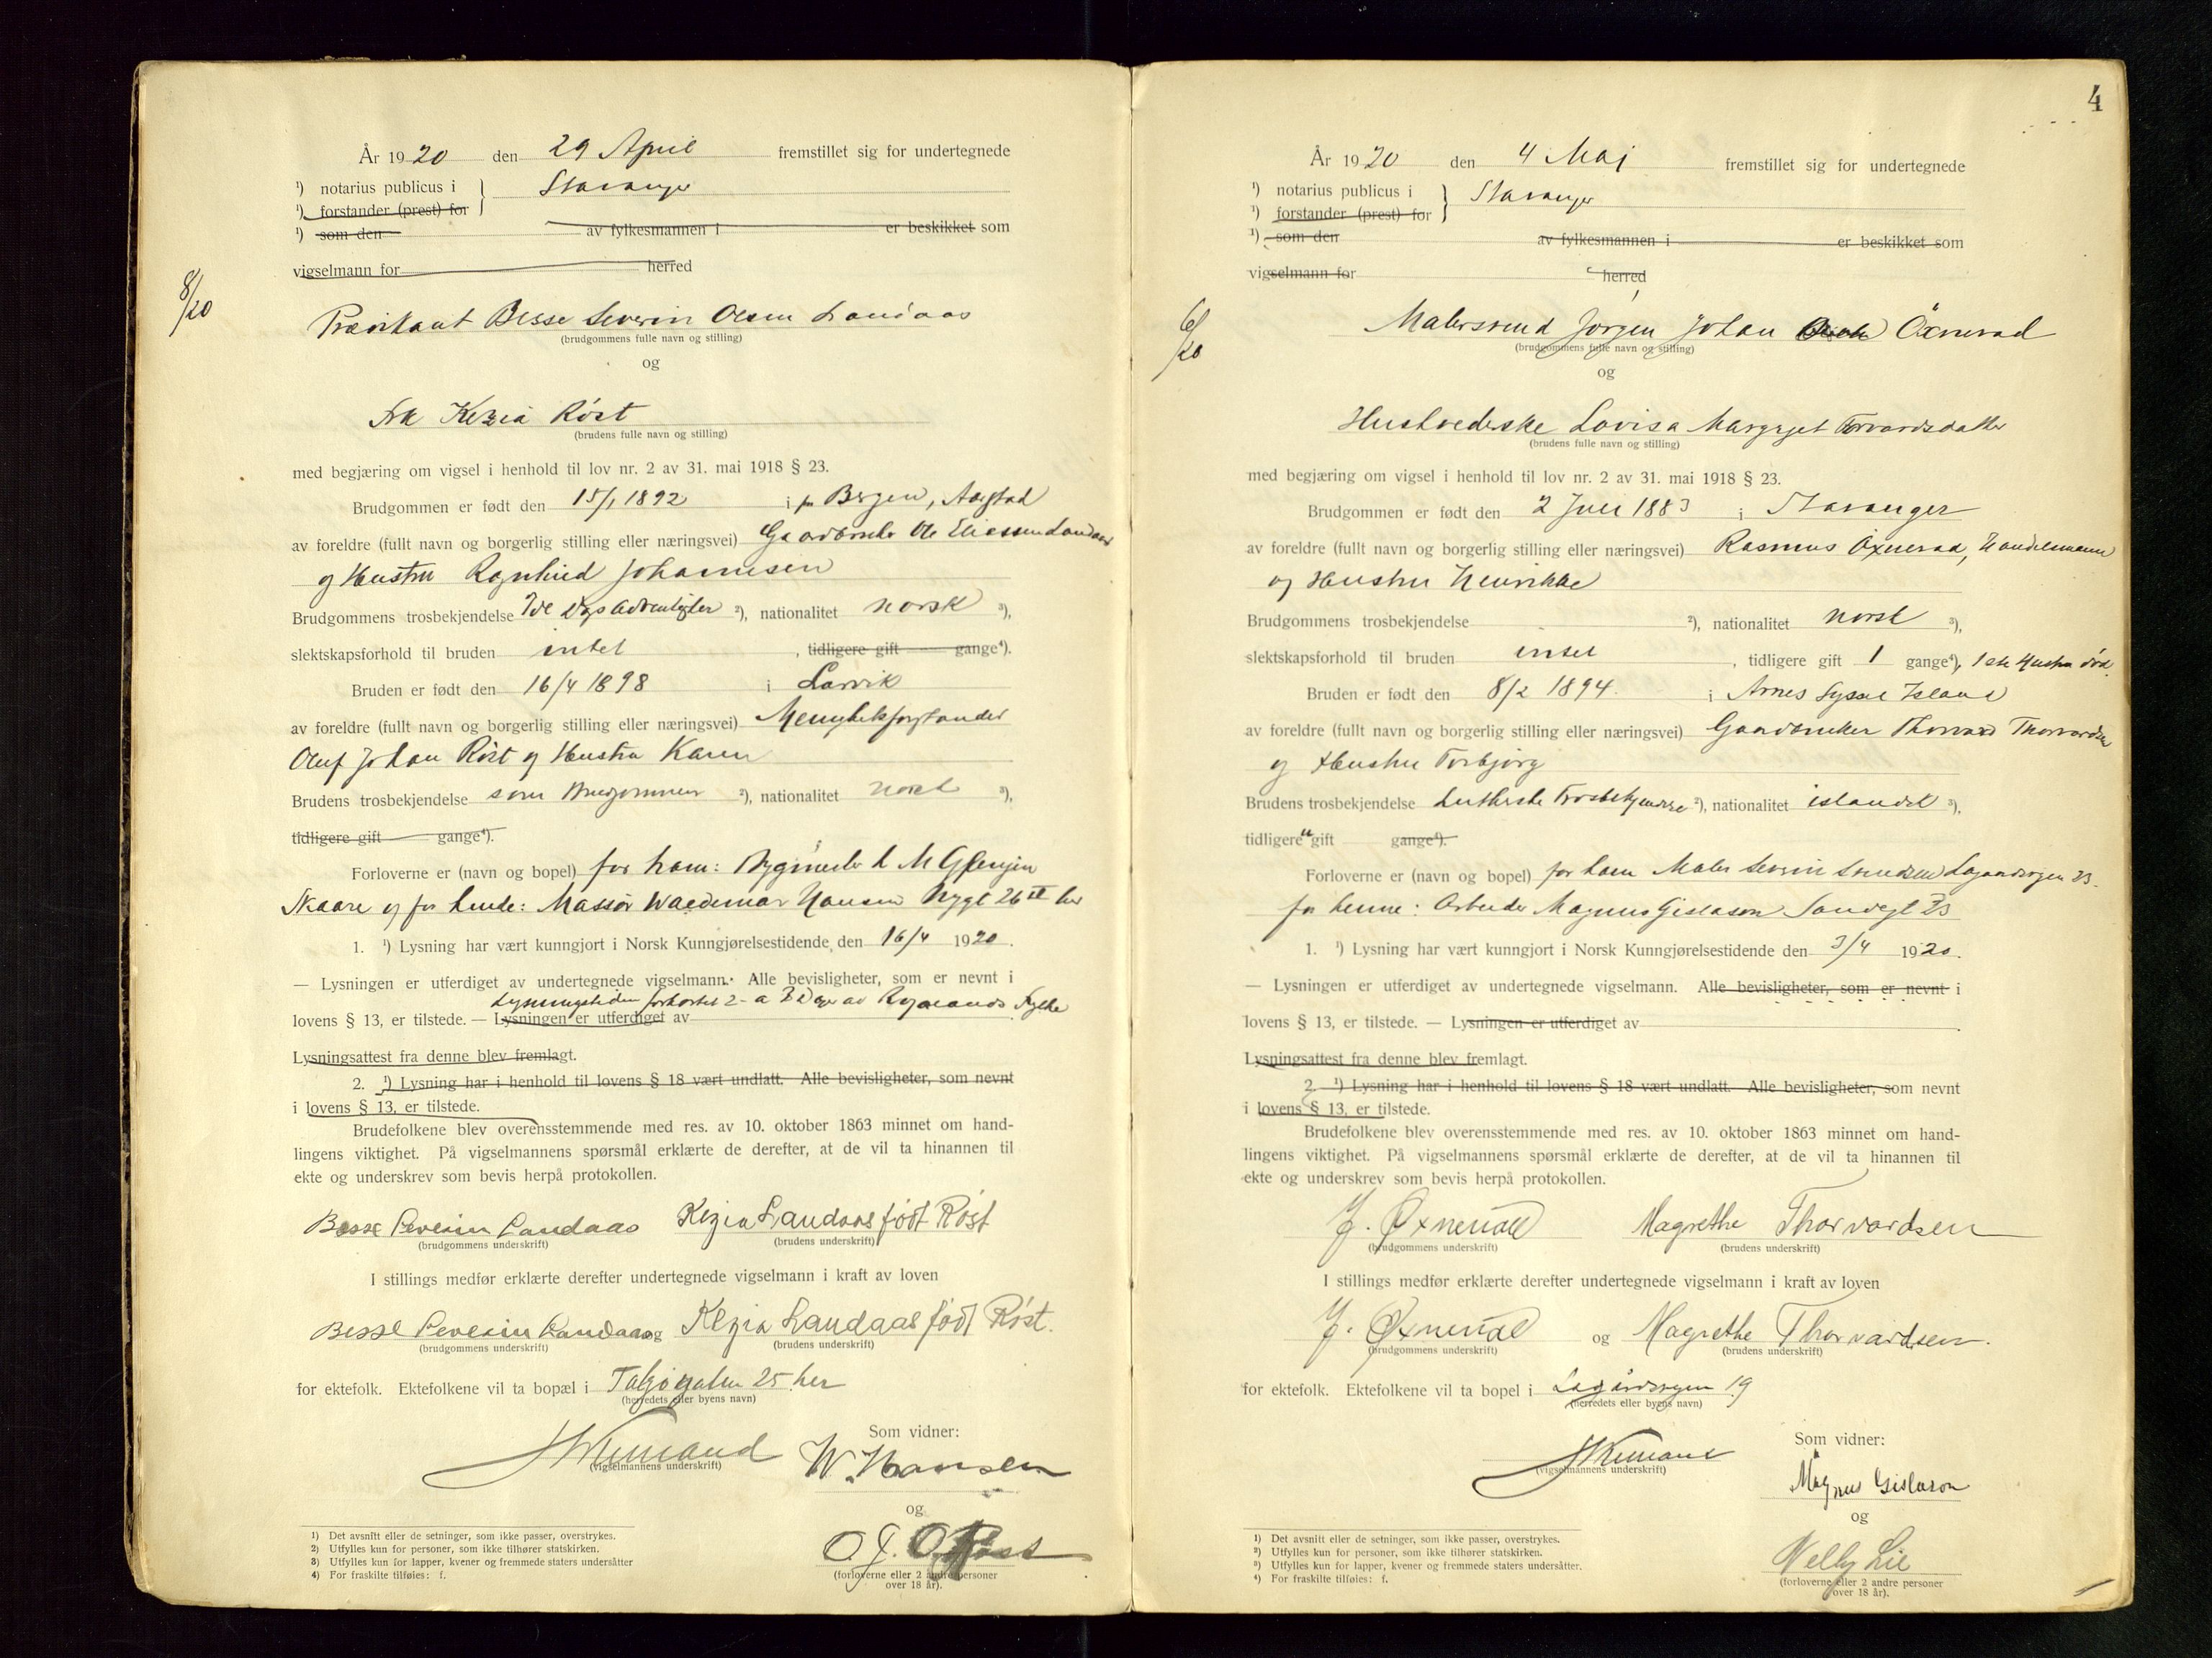 År 1920 den 29 April fremstillet sig for undertegnede
¹) notarius publicus i } Stavanger
¹) forstander (prest) for
¹) som den av fylkesmannen i er beskikket som
vigselmann for herred
8/20
Prædikant Besse Severin Olsen Landaas
(brudgommens fulle navn og stilling)
og
Frk Kezia Röst
(brudens fulle navn og stilling)
med begjæring om vigsel i henhold til lov nr. 2 av 31. mai 1918 § 23.
Brudgommen er født den 15/1 1892 i Bergen, Aarstad
av foreldre (fullt navn og borgerlig stilling eller næringsvei) Gaardbruker Ole Eliassen Landaas
og Hustru Ragnhild Johannesen
Brudgommens trosbekjendelse 7de Dags Adventister ²), nationalitet norsk ³),
slektskapsforhold til bruden intet , tidligere gift gange⁴).
Bruden er født den 16/4 1898 i Larvik
av foreldre (fullt navn og borgerlig stilling eller næringsvei) Menighetsforstander
Oluf Johan Röst og Hustru Karen
Brudens trosbekjendelse som Brudgommen ²), nationalitet norsk ³),
tidligere gift gange⁴).
Forloverne er (navn og bopel) for ham: Bygmester L M
Skaare og for hende: Massör Waldemar Hansen Nygt 26 her
1. ¹) Lysning har vært kunngjort i Norsk Kunngjørelsestidende den 16/4 1920.
— Lysningen er utferdiget av undertegnede vigselmann. Alle bevisligheter, som er nevnt i
Lysningstiden forkortet 2 a 3 Dage av Rogalands Fylke
lovens § 13, er tilstede. — Lysningen er utferdiget av
Lysningsattest fra denne blev fremlagt.
2. ¹) Lysning har i henhold til lovens § 18 vært undlatt. Alle bevisligheter, som nevnt
i lovens § 13, er tilstede.
Brudefolkene blev overensstemmende med res. av 10. oktober 1863 minnet om hand-
lingens viktighet. På vigselmannens spørsmål erklærte de derefter, at de vil ta hinannen til
ekte og underskrev som bevis herpå protokollen.
Besse Severin Landaas Kezia Landaas født Röst
(brudgommens underskrift) (brudens underskrift)
I stillings medfør erklærte derefter undertegnede vigselmann i kraft av loven
Besse Severin Landaas og Kezia Landaas født Röst.
(brudgommens underskrift) (brudens underskrift)
for ektefolk. Ektefolkene vil ta bopæl i Taljegaten 25 her
(herredets eller byens navn)
Som vidner:
(vigselmannens underskrift)
W. Hansen
og
O. J. O. Røst
(forloverne eller 2 andre personer
over 18 år).
1) Det avsnitt eller de setninger, som ikke passer, overstrykes.
2) Utfylles kun for personer, som ikke tilhører statskirken.
3) Utfylles kun for lapper, kvener og fremmede staters undersåtter
4) For fraskilte tilføies: f.
4
År 1920 den 4 Mai fremstillet sig for undertegnede
¹) notarius publicus i } Stavanger
¹) forstander (prest) for
¹) som den av fylkesmannen i er beskikket som
vigselmann for herred
6/20
Malersvend Jörgen Johan Öxnevad
(brudgommens fulle navn og stilling)
og
Husholderske Lovisa Margrjet Torvardsdatter
(brudens fulle navn og stilling)
med begjæring om vigsel i henhold til lov nr. 2 av 31. mai 1918 § 23.
Brudgommen er født den 2 Juli 1883 i Stavanger
av foreldre (fullt navn og borgerlig stilling eller næringsvei) Rasmus Öxnevad, Handelsmann
og Hustru Henrikke
Brudgommens trosbekjendelse ²), nationalitet norsk ³),
slektskapsforhold til bruden intet , tidligere gift 1 gange⁴), 1ste Hustru död.
Bruden er født den 8/2 1894. i Arnes Syssel Island
av foreldre (fullt navn og borgerlig stilling eller næringsvei) Gaardbruker Thorvard Thorvardsen
og Hustru Torbjörg
Brudens trosbekjendelse Lutherske Trosbekjendelse ²), nationalitet islandsk ³),
tidligere u gift gange⁴).
Forloverne er (navn og bopel) for ham Maler Severin Svendsen Lagaardsvegen 23.
for henne: Arbeider Magnus Gislason Sandvgt 23
1. ¹) Lysning har vært kunngjort i Norsk Kunngjørelsestidende den 3/4 1920.
— Lysningen er utferdiget av undertegnede vigselmann. Alle bevisligheter, som er nevnt i
lovens § 13, er tilstede. — Lysningen er utferdiget av .
Lysningsattest fra denne blev fremlagt.
2. ¹) Lysning har i henhold til lovens § 18 vært undlatt. Alle bevisligheter, som nevnt
i lovens § 13, er tilstede.
Brudefolkene blev overensstemmende med res. av 10. oktober 1863 minnet om hand-
lingens viktighet. På vigselmannens spørsmål erklærte de derefter, at de vil ta hinannen til
ekte og underskrev som bevis herpå protokollen.
J. Øxnevad Magrethe Thorvardsen
(brudgommens underskrift) (brudens underskrift)
I stillings medfør erklærte derefter undertegnede vigselmann i kraft av loven
J. Øxnevad og Magrethe Thorvardsen.
(brudgommens underskrift) (brudens underskrift)
for ektefolk. Ektefolkene vil ta bopel i Lagårdsvegen 19
(herredets eller byens navn)
Som vidner:
(vigselmannens underskrift)
Magnus Gislason
og
Nelly Lie
(forloverne eller 2 andre personer
over 18 år).
¹) Det avsnitt eller de setninger, som ikke passer, overstrykes.
²) Utfylles kun for personer, som ikke tilhører statskirken.
³) Utfylles kun for lapper, kvener og fremmede staters undersåtter.
⁴) For fraskilte tilføies: f.